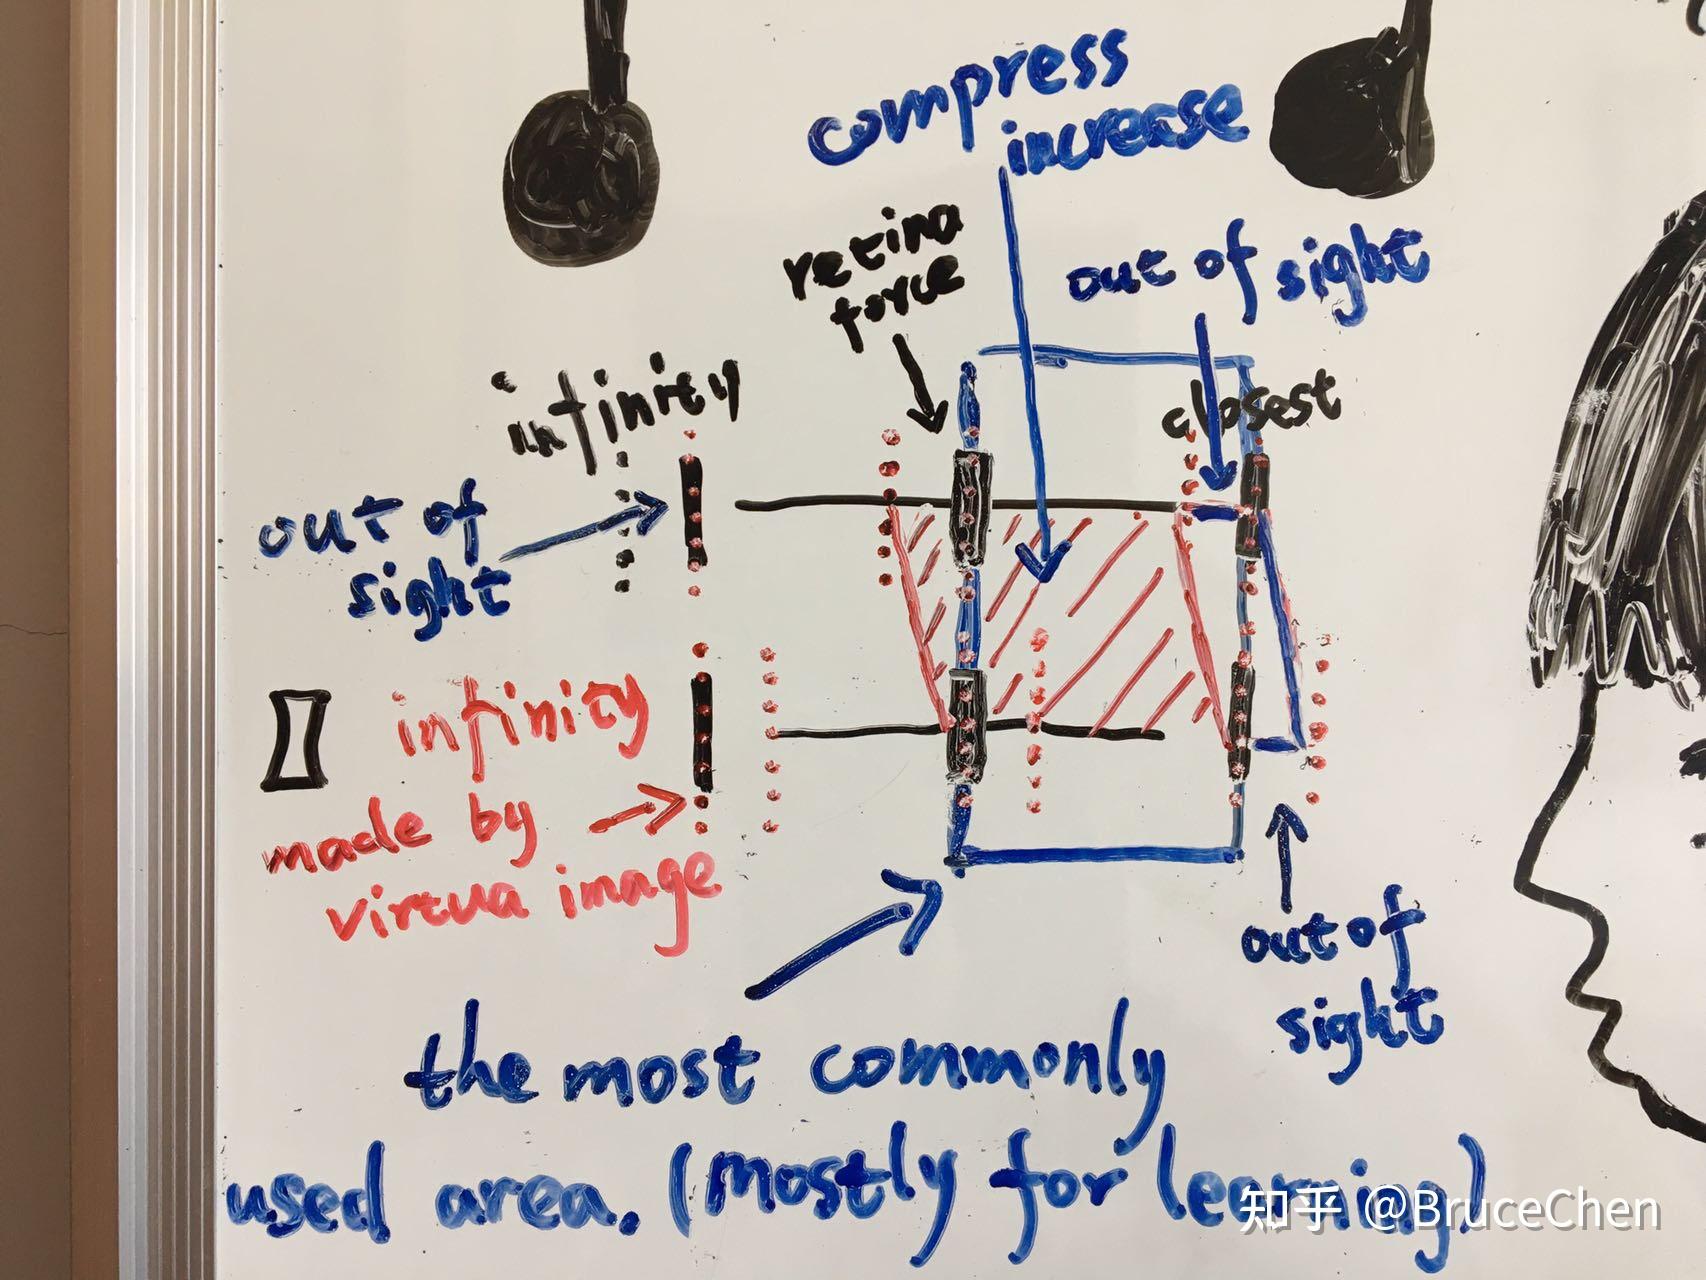 compress
increase
retina
force
out of sight
infinity
closest
out of
sight
infinity
made by
virtua image
out of
sight
the most commonly
used area. (mostly for learning)
知乎 @BruceChen